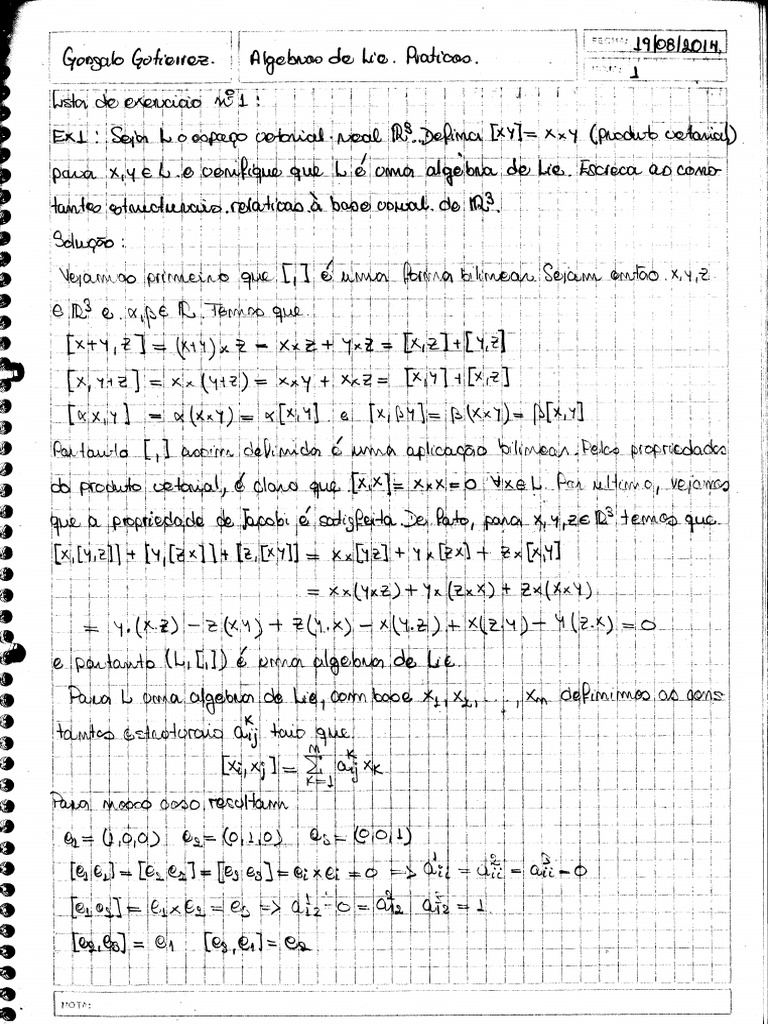 Gonzalo Gutierrez. Algebras de Lie. Praticas. FECHA: 19/08/2014.
1
Lista de exercicio nº1:
Ex1: Seja L o espaço vetorial real ℝ³. Defina [xy] = x×y (produto vetorial)
para x,y ∈ L e verifique que L é uma algebra de Lie. Escreva as cons-
tantes estructurais relativas à base usual de ℝ³.
Solução:
Vejamos primeiro que [,] é uma forma bilinear. Sejam então x,y,z
∈ ℝ³ e α,β ∈ ℝ. Temos que
[x+y, z] = (x+y)×z = x×z + y×z = [x,z]+[y,z]
[x, y+z] = x×(y+z) = x×y + x×z = [x,y]+[x,z]
[αx,y] = α(x×y) = α[x,y] e [x,βy] = β(x×y) = β[x,y]
Portanto [,] assim definida é uma aplicação bilinear. Pelas propriedades
do produto vetorial, é claro que [x,x] = x×x = 0 ∀x∈L. Por ultimo, vejamos
que a propriedade de Jacobi é satisfeita. De fato, para x,y,z∈ℝ³ temos que
[x,[y,z]] + [y,[zx]] + [z,[xy]] = x×[yz] + y×[zx] + z×[x,y]
= x×(y×z) + y×(z×x) + z×(x×y)
= y.(x.z) − z(x.y) + z(y.x) − x(y.z) + x(z.y) − y(z.x) = 0
e portanto (L,[,]) é uma algebra de Lie.
Para L uma algebra de Lie, com base x₁, x₂, ..., xₙ definimos as cons-
tantes estruturais aᵢⱼᵏ tais que
[xᵢ,xⱼ] = Σₖ₌₁ⁿ aᵢⱼᵏ xₖ
Para nosso caso resultam
e₁ = (1,0,0) e₂ = (0,1,0) e₃ = (0,0,1)
[e₁e₁] = [e₂e₂] = [e₃e₃] = eᵢ×eᵢ = 0 => aᵢᵢ¹ = aᵢᵢ² = aᵢᵢ³ = 0
[e₁e₂] = e₁×e₂ = e₃ => a₁₂¹ = 0 = a₁₂² a₁₂³ = 1
[e₂,e₃] = e₁ [e₃,e₁] = e₂
NOTA: